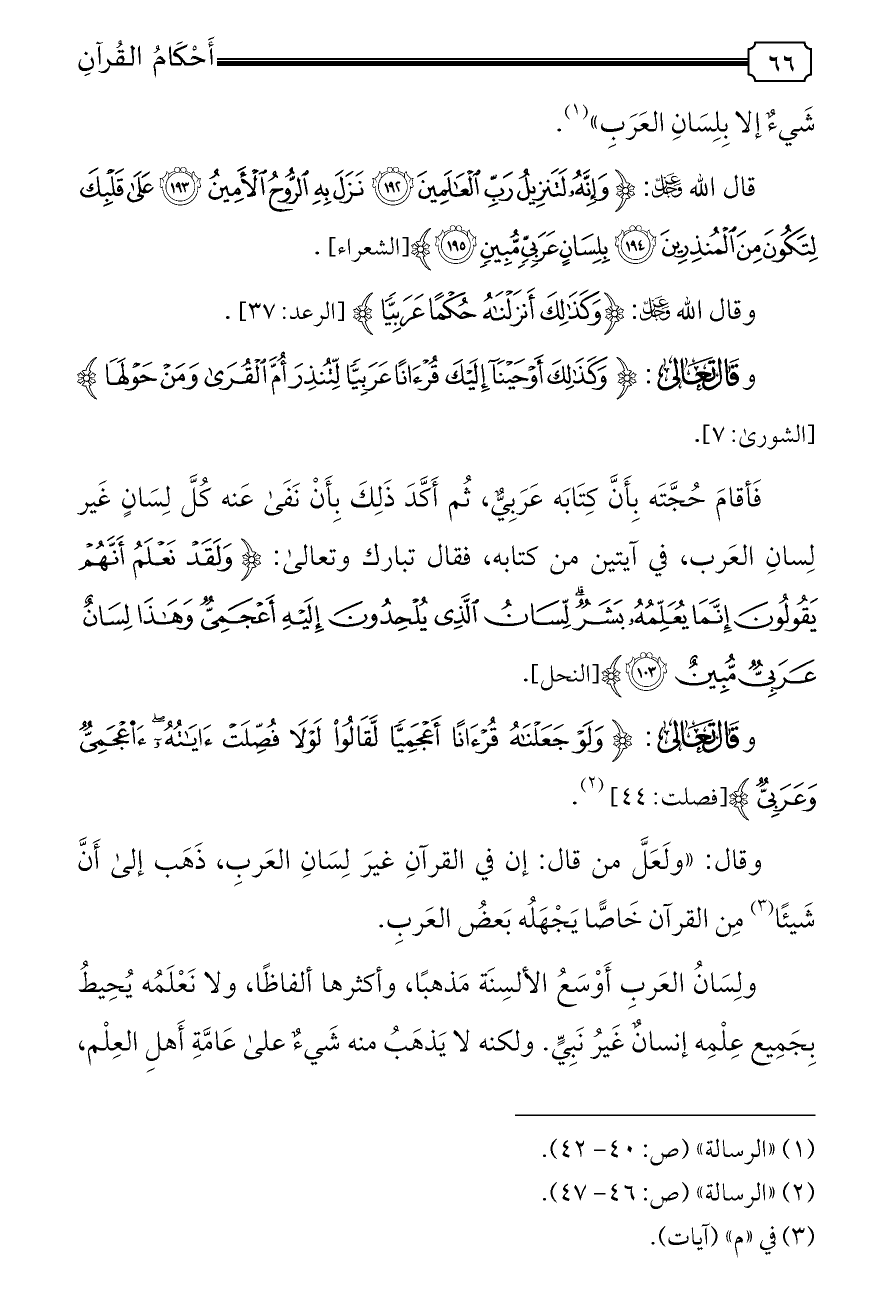 ٦٦ أَحْكَامُ القُرآنِ
شَيءٌ إلا بِلِسَانِ العَرَبِ»(١).
قال الله عَزَّوَجَلَّ: ﴿ وَإِنَّهُۥ لَتَنزِيلُ رَبِّ ٱلْعَٰلَمِينَ ١٩٢ نَزَلَ بِهِ ٱلرُّوحُ ٱلْأَمِينُ ١٩٣ عَلَىٰ قَلْبِكَ
لِتَكُونَ مِنَ ٱلْمُنذِرِينَ ١٩٤ بِلِسَانٍ عَرَبِيٍّ مُّبِينٍ ١٩٥ ﴾[الشعراء] .
وقال الله عَزَّوَجَلَّ: ﴿وَكَذَٰلِكَ أَنزَلْنَٰهُ حُكْمًا عَرَبِيًّا ﴾ [الرعد: ٣٧] .
وقَالَ تَعَالَىٰ: ﴿ وَكَذَٰلِكَ أَوْحَيْنَآ إِلَيْكَ قُرْءَانًا عَرَبِيًّا لِّتُنذِرَ أُمَّ ٱلْقُرَىٰ وَمَنْ حَوْلَهَا ﴾
[الشورىٰ: ٧].
فَأقامَ حُجَّتَه بِأَنَّ كِتَابَه عَرَبِيٌّ، ثُم أَكَّدَ ذَلِكَ بِأَنْ نَفَىٰ عَنه كُلَّ لِسَانٍ غَير
لِسانِ العَرب، في آيتين من كتابه، فقال تبارك وتعالىٰ: ﴿ وَلَقَدْ نَعْلَمُ أَنَّهُمْ
يَقُولُونَ إِنَّمَا يُعَلِّمُهُۥ بَشَرٌ ۗ لِّسَانُ ٱلَّذِى يُلْحِدُونَ إِلَيْهِ أَعْجَمِىٌّ وَهَٰذَا لِسَانٌ
عَرَبِىٌّ مُّبِينٌ ١٠٣ ﴾[النحل].
وقَالَ تَعَالَىٰ: ﴿ وَلَوْ جَعَلْنَٰهُ قُرْءَانًا أَعْجَمِيًّا لَّقَالُوا۟ لَوْلَا فُصِّلَتْ ءَايَٰتُهُۥٓ ۖ ءَا۬عْجَمِىٌّ
وَعَرَبِىٌّ ﴾[فصلت: ٤٤] (٢).
وقال: «ولَعَلَّ من قال: إن في القرآنِ غيرَ لِسَانِ العَربِ، ذَهَب إلىٰ أَنَّ
شَيئًا(٣) مِن القرآن خَاصًّا يَجْهَلُه بَعضُ العَربِ.
ولِسَانُ العَربِ أَوْسَعُ الألسِنَة مَذهبًا، وأكثرها ألفاظًا، ولا نَعْلَمُه يُحِيطُ
بِجَمِيع عِلْمِه إنسانٌ غَيرُ نَبِيٍّ. ولكنه لا يَذهَبُ منه شَيءٌ علىٰ عَامَّةِ أَهلِ العِلْم،
(١) «الرسالة» (ص: ٤٠ – ٤٢).
(٢) «الرسالة» (ص: ٤٦ – ٤٧).
(٣) في «م» (آيات).